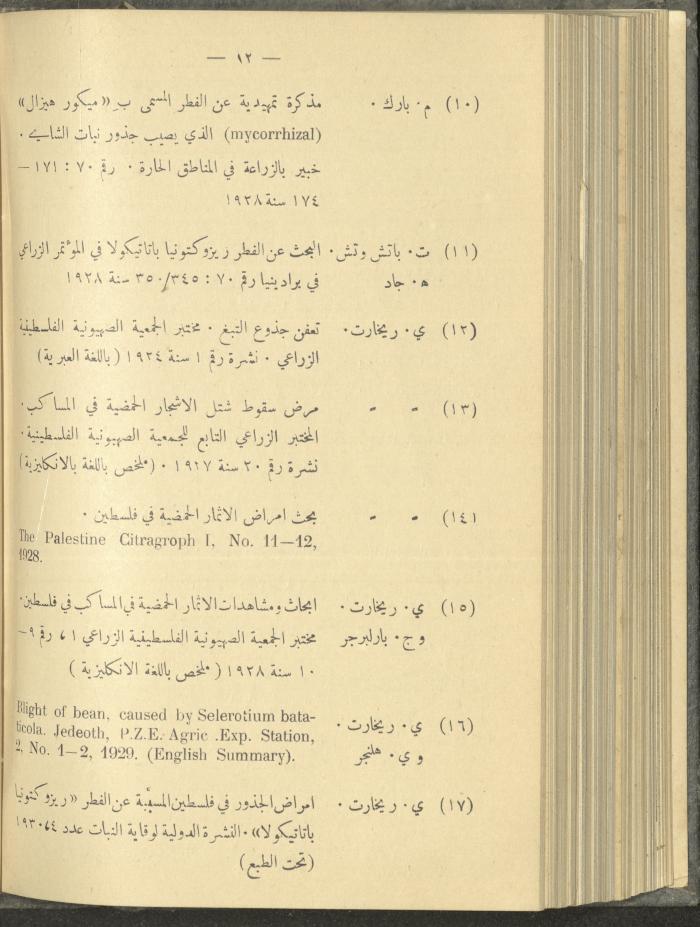 — ١٢ —
(١٠) م. بارك. مذكرة تمهيدية عن الفطر المسمى بـ «ميكور هيزال»
(mycorrhizal) الذي يصيب جذور نبات الشاي.
خبير بالزراعة في المناطق الحارة. رقم ٧٠ : ١٧١ –
١٧٤ سنة ١٩٢٨
(١١) ت. باتش وتش. البحث عن الفطر ريزوكتونيا باتاتيكولا في المؤتمر الزراعي
ه. جاد في برادينيا رقم ٧٠ : ٣٤٥/٣٥٠ سنة ١٩٢٨
(١٢) ي. ريخارت. تعفن جذوع التبغ. مختبر الجمعية الصهيونية الفلسطينية
الزراعي. نشرة رقم ١ سنة ١٩٢٤ (باللغة العبرية)
(١٣) - - مرض سقوط شتل الاشجار الحمضية في المساكب.
المختبر الزراعي التابع للجمعية الصهيونية الفلسطينية.
نشرة رقم ٢٠ سنة ١٩٢٧. (ملخص باللغة بالانكليزية)
(١٤١ - - بحث امراض الاثمار الحمضية في فلسطين.
The Palestine Citragroph I, No. 11—12,
1928.
(١٥) ي. ريخارت. ابحاث ومشاهدات الاثمار الحمضية في المساكب في فلسطين.
و ج. بارلبرجر مختبر الجمعية الصهيونية الفلسطينية الزراعي ١ ، رقم ٩–
١٠ سنة ١٩٢٨ (ملخص باللغة الانكليزية)
(١٦) ي. ريخارت. Blight of bean, caused by Selerotium bata-
ticola. Jedeoth, P.Z.E. Agric .Exp. Station,
و ي. هلنجر 2, No. 1—2, 1929. (English Summary).
(١٧) ي. ريخارت. امراض الجذور في فلسطين المسببة عن الفطر «ريزوكتونيا
باتاتيكولا». النشرة الدولية لوقاية النبات عدد ٤ ، ١٩٣٠
(تحت الطبع)